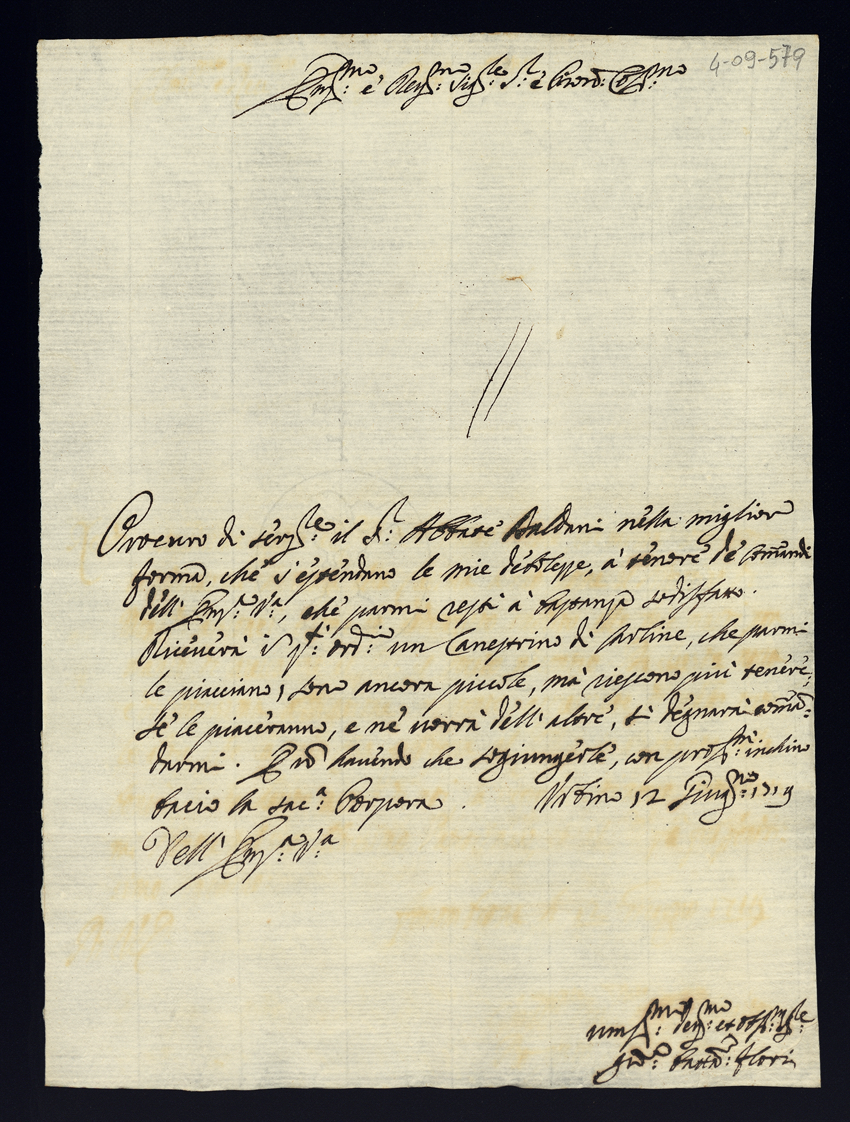 4-09-579
Em:mo e Reu:mo Sig:re S:r e Pron: Col:mo
Procuro di seru:re il S:r Abbate Baldani nella miglior
forma, che s'estendano le mie debolezze, à tenore de Comandi
dell' Em:a V:a, che parmi resti à bastanza sodisfatto.
Riceuerà un Canestrino di Cartine, che parmi
le piacciano, sono ancora piccole, mà riescono più tenere;
se le piaceranno, e ne uorrà dell' altre, si degnarà coman=
darmi. Più hauendo che sogiungerle, con prof:mo inchino
bacio la sac:a Porpora. Urbino 12 Giug:no 1719
Dell' Em:a V:a
um:mo deu:mo et obl:mo
Gio: Batta: Flori